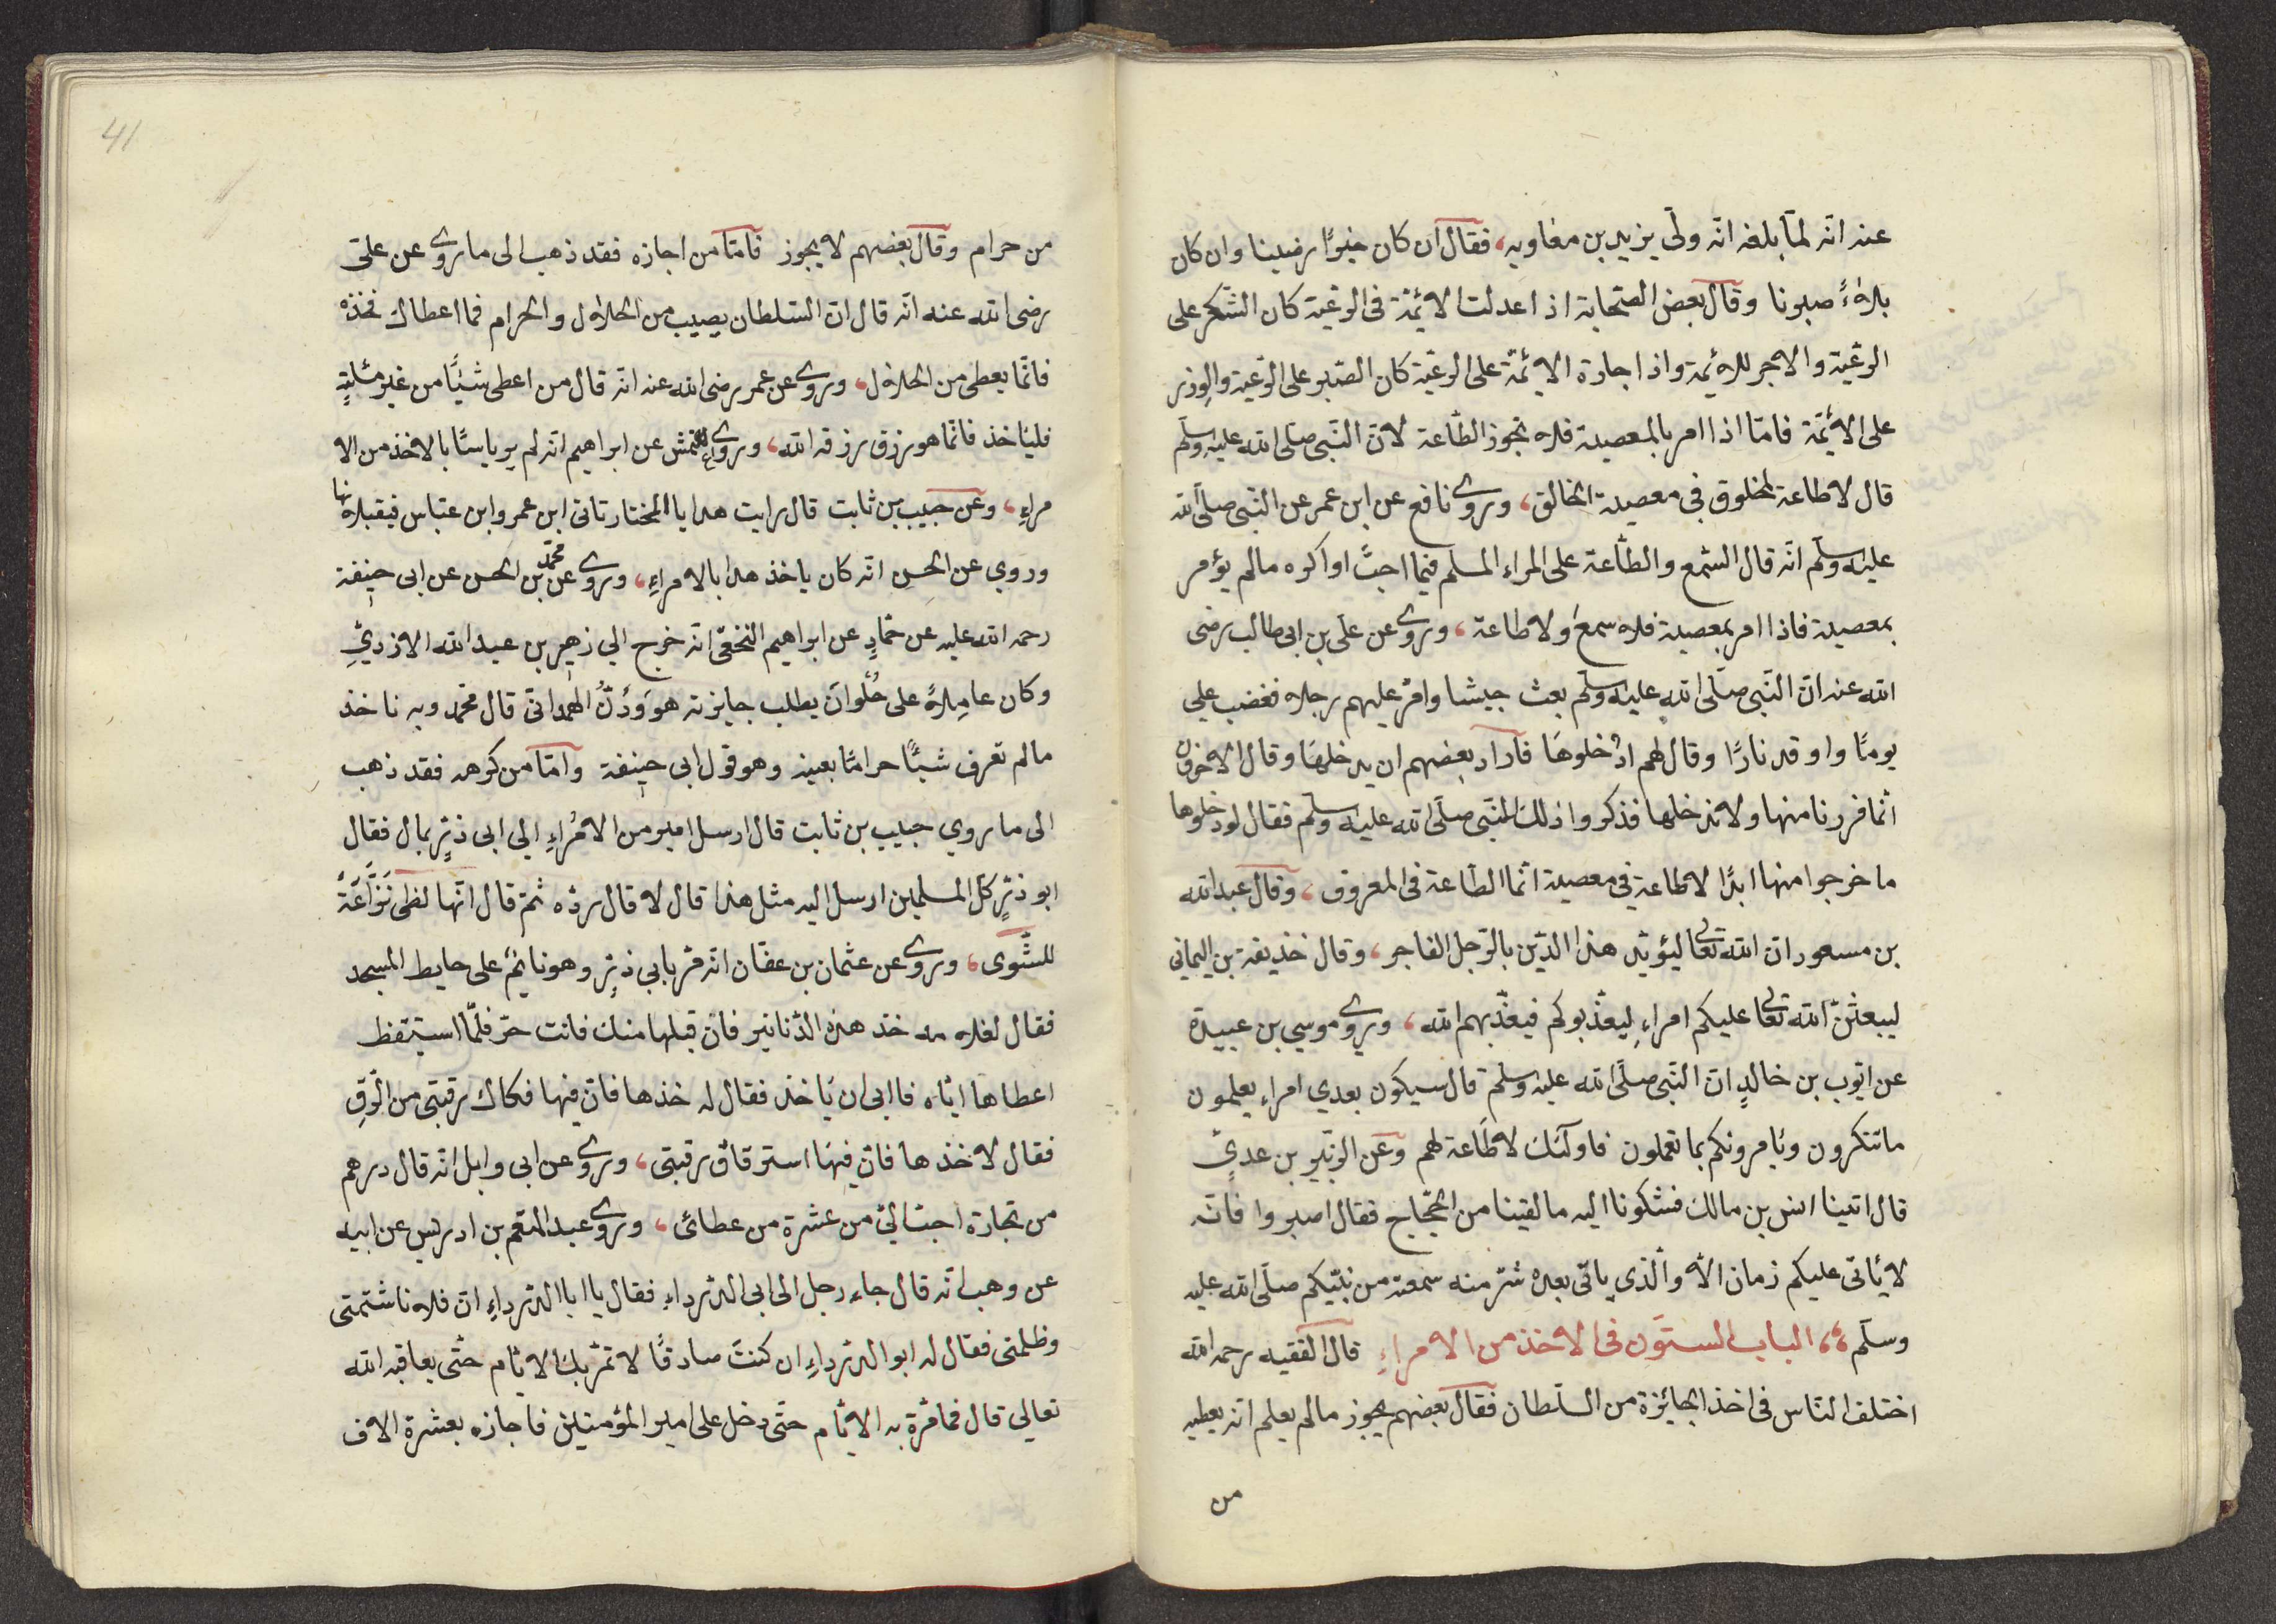 عنه انّه لمّا بلغه انّه ولّي يزيد بن معاويه، فقال ان كان خيرًا رضينا وان كان
بلاءً صبرنا وقال بعض الصّحابة اذا عدلت الائمّة فى الرعيّة كان الشّكر على
الرعيّة والاجر للائمة واذا جارة الائمّة على الرعيّة كان الصّبر على الرّعية والوزر
على الائمّة فامّا اذا امر بالمعصية فلا تجوز الطّاعة لانّ النّبى صلّى الله عليه وسلّم
قال لا طاعة لمخلوق فى معصية الخالق، وروى نافع عن ابن عمر عن النّبى صلّى الله
عليه وسلّم انّه قال السّمع والطّاعة على المراء المسلم فيما احبّ او اكره مالم يؤمر
بمعصية فاذا امر بمعصية فلا سمع ولا طاعة، وروى عن علّى بن ابى طالب رضى
الله عنه انّ النّبى صلّى الله عليه وسلّم بعث جيشا وامّر عليهم رجلا فغضب على
يومًا واوقد نارًا وقال لهم ادْخلوهَا فاراد بعضهم ان يدخلهَا وقال الاخرون
انّما فررنا منها ولا ندخلها فذكروا ذلك للنّبى صلّى الله عليه وسلّم فقال لو دخلوها
ما خرجوا منها ابدًا لا طاعة فى معصية انّما الطّاعة فى المعروف، وقال عبد الله
بن مسعود انّ الله تعالى ليؤيّد هذا الدّين بالرّجل الفاجر، وقال خذيفة بن اليمانى
ليبعثنّ الله تعالى عليكم امراءِ ليعذّبوكم فيعذّبهم الله، ويروى موسي بن عبيدة
عن ايّوب بن خالدٍ انّ النّبى صلّى الله عليه وسلّم قال سيكون بعدي امراء يعلمون
ما تنكرون ويَامرونكم بما تعملون فاولَئك لا طَاعة لهم وعن الزبّير بن عدىٍّ
قال اتينا انس بن مالك فشكونا اليه ما لقينا من الحجّاج فقال اصبروا فانّه
لا يَاتى عليكم زمان الاّ والّذى ياتى بعده شرّ منه سمعته من نبيّكم صلّى الله عليه
وسلّم ،، الباب الستّون فى الاخذ من الامراءِ قال الفقيه رحمه الله
اختلف النّاس فى اخذ الجائزة من السّلطان فقال بعضهم يجوز مالم يعلم انّه يعطيه
من
41
من حرام وقال بعضهم لا يجوز فامّا من اجازه فقد ذهب الى ما روى عن علىّ
رضى الله عنه انّه قال انّ السّلطان يصيب من الحلال والحرام فما اعطاك فخذه
فانّما يعطى من الحلال، وروى عن عمر رضى الله عنه انّه قال من اعطى شيئًا من غير مسئلةٍ
فليَاخذ فانّما هو رزق رزقه الله، وروى الاعمش عن ابراهيم انّه لم ير باسًا بالاخذ من الا
مراءِ، وعن حبيب بن ثابت قال رايت هدايا المختار تاتى ابن عمر وابن عبّاس فيقبلانها
وروي عن الحسن انّه كان ياخذ هدابا الامراءِ، وروى عن محمّد بن الحسن عن ابى حنيفة
رحمه الله عليه عن حمّادٍ عن ابراهيم النخعّى انّه خرج الي زهير بن عبد الله الازدىِّ
وكان عامِلاً على حُلْوانَ يطلب جايزته هوَ وَذَرُّ الهمدانىّ قال محمّد وبه ناخذ
ما لم نعرف شيئًا حرامًا بعينه وهو قول ابى حنيفة وامّا من كرهه فقد ذهب
الى ما روي حبيب بن ثابت قال ارسل امير من الامُراءِ الي ابى ذرٍّ بمال فقال
ابو ذرٍّ كلّ المسلمين ارسل اليه مثل هذا قال لا قال ردّه ثمّ قال انّها لظى نَزَّاعَةً
للشّوى، وروى عن عثمان بن عفّان انّه مرّ بابى ذرٍّ وهو نايمٌ على حايط المسجد
فقال لغلامه خذ هذه الدّنانير فان قبلها منك فانت حرّ فلمّا استيقظ
اعطاها ايّاه فاابى ان يَاخذ فقال له خذها فانّ فيها فكاك رقبتى من الرّقِ
فقال لا خذها فانّ فيهَا استرقاق رقبتى، وروى عن ابى وايل انّه قال درهم
من تجارة احبّ الىّ من عشرة من عطائى، وروى عبد المنعم بن ادريس عن ابيه
عن وهب انّه قال جاء رجل الى ابى الدّرداءِ فقال يا ابا الدّرداءِ انّ فلانا شتمتى
وظلمتى فقال له ابو الدّرداءِ ان كنتَ صادقًا لا تمرّ بك الايّام حتّى يعاقبه الله
تعالي قال فما مرّة به الايّام حتّى دخل على امير المؤمنين فاجازه بعشرة الاف